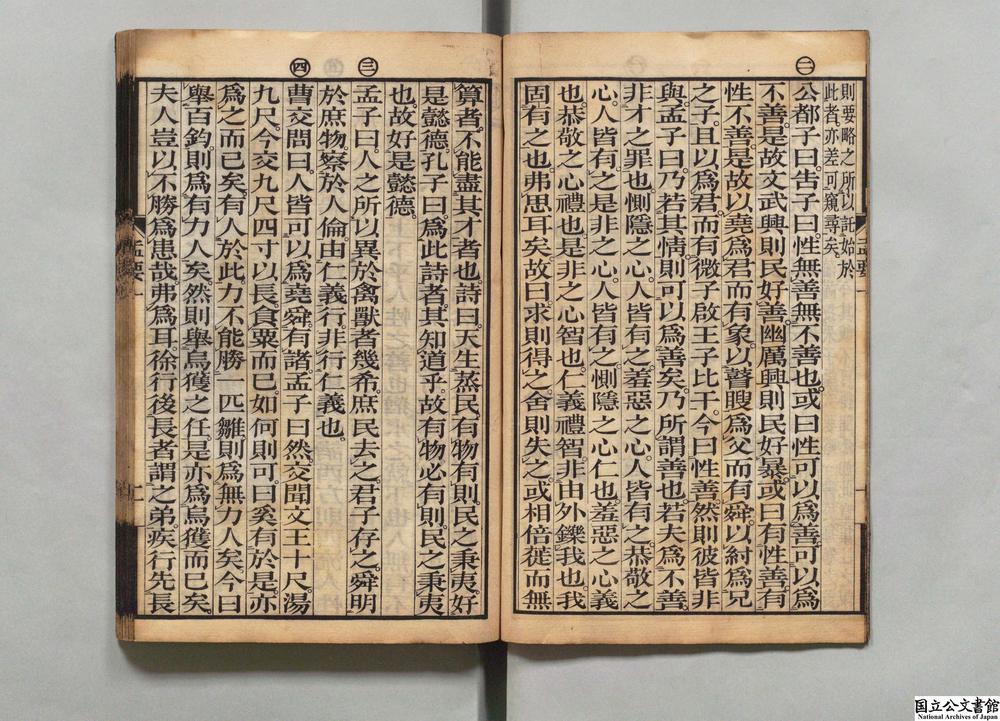 孟要一
一
則要略之所以託始於
此者亦差可窺尋矣。
㊀
公都子曰。告子曰。性無善無不善也。或曰性可以爲善可以爲
不善。是故文武興則民好善。幽厲興則民好暴。或曰有性善。有
性不善。是故以堯爲君而有象。以瞽瞍爲父而有舜。以紂爲兄
之子。且以爲君。而有微子啟王子比干。今曰性善。然則彼皆非
與。孟子曰。乃若其情則可以爲善矣。乃所謂善也。若夫爲不善。
非才之罪也。惻隱之心。人皆有之。羞惡之心。人皆有之。恭敬之
心。人皆有之。是非之心。人皆有之。惻隱之心仁也。羞惡之心義
也。恭敬之心禮也。是非之心智也。仁義禮智非由外鑠我也。我
固有之也。弗思耳矣。故曰求則得之。舍則失之。或相倍蓰而無
算者。不能盡其才者也。詩曰天生蒸民。有物有則。民之秉夷。好
是懿德。孔子曰。爲此詩者。其知道乎。故有物必有則。民之秉夷
也。故好是懿德。
㊂
孟子曰。人之所以異於禽獸者幾希。庶民去之。君子存之。舜明
於庶物。察於人倫。由仁義行。非行仁義也。
㊃
曹交問曰。人皆可以爲堯舜。有諸。孟子曰然。交聞文王十尺。湯
九尺。今交九尺四寸以長。食粟而已。如何則可。曰奚有於是。亦
爲之而已矣。有人於此。力不能勝一匹雛。則爲無力人矣。今曰
舉百鈞。則爲有力人矣。然則舉烏獲之任。是亦爲烏獲而已矣。
夫人豈以不勝爲患哉。弗爲耳。徐行後長者。謂之弟。疾行先長
孟要
国立公文書館
National Archives of Japan